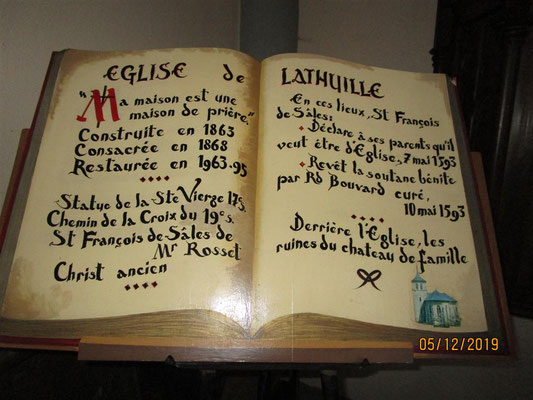 EGLISE de
"Ma maison est une
maison de prière."
Construite en 1863
Consacrée en 1868
Restaurée en 1963-95
Statue de la Ste Vierge 17s.
Chemin de la Croix du 19es.
St François de Sâles de
Mr Rosset
Christ ancien
LATHUILLE
En ces lieux, St François
de Sâles:
Déclare à ses parents qu'il
veut être d'Eglise, 7 mai 1593
Revêt la soutane bénite
par Rd Bouvard curé,
10 mai 1593
Derrière l'Eglise, les
ruines du chateau de famille
05/12/2019